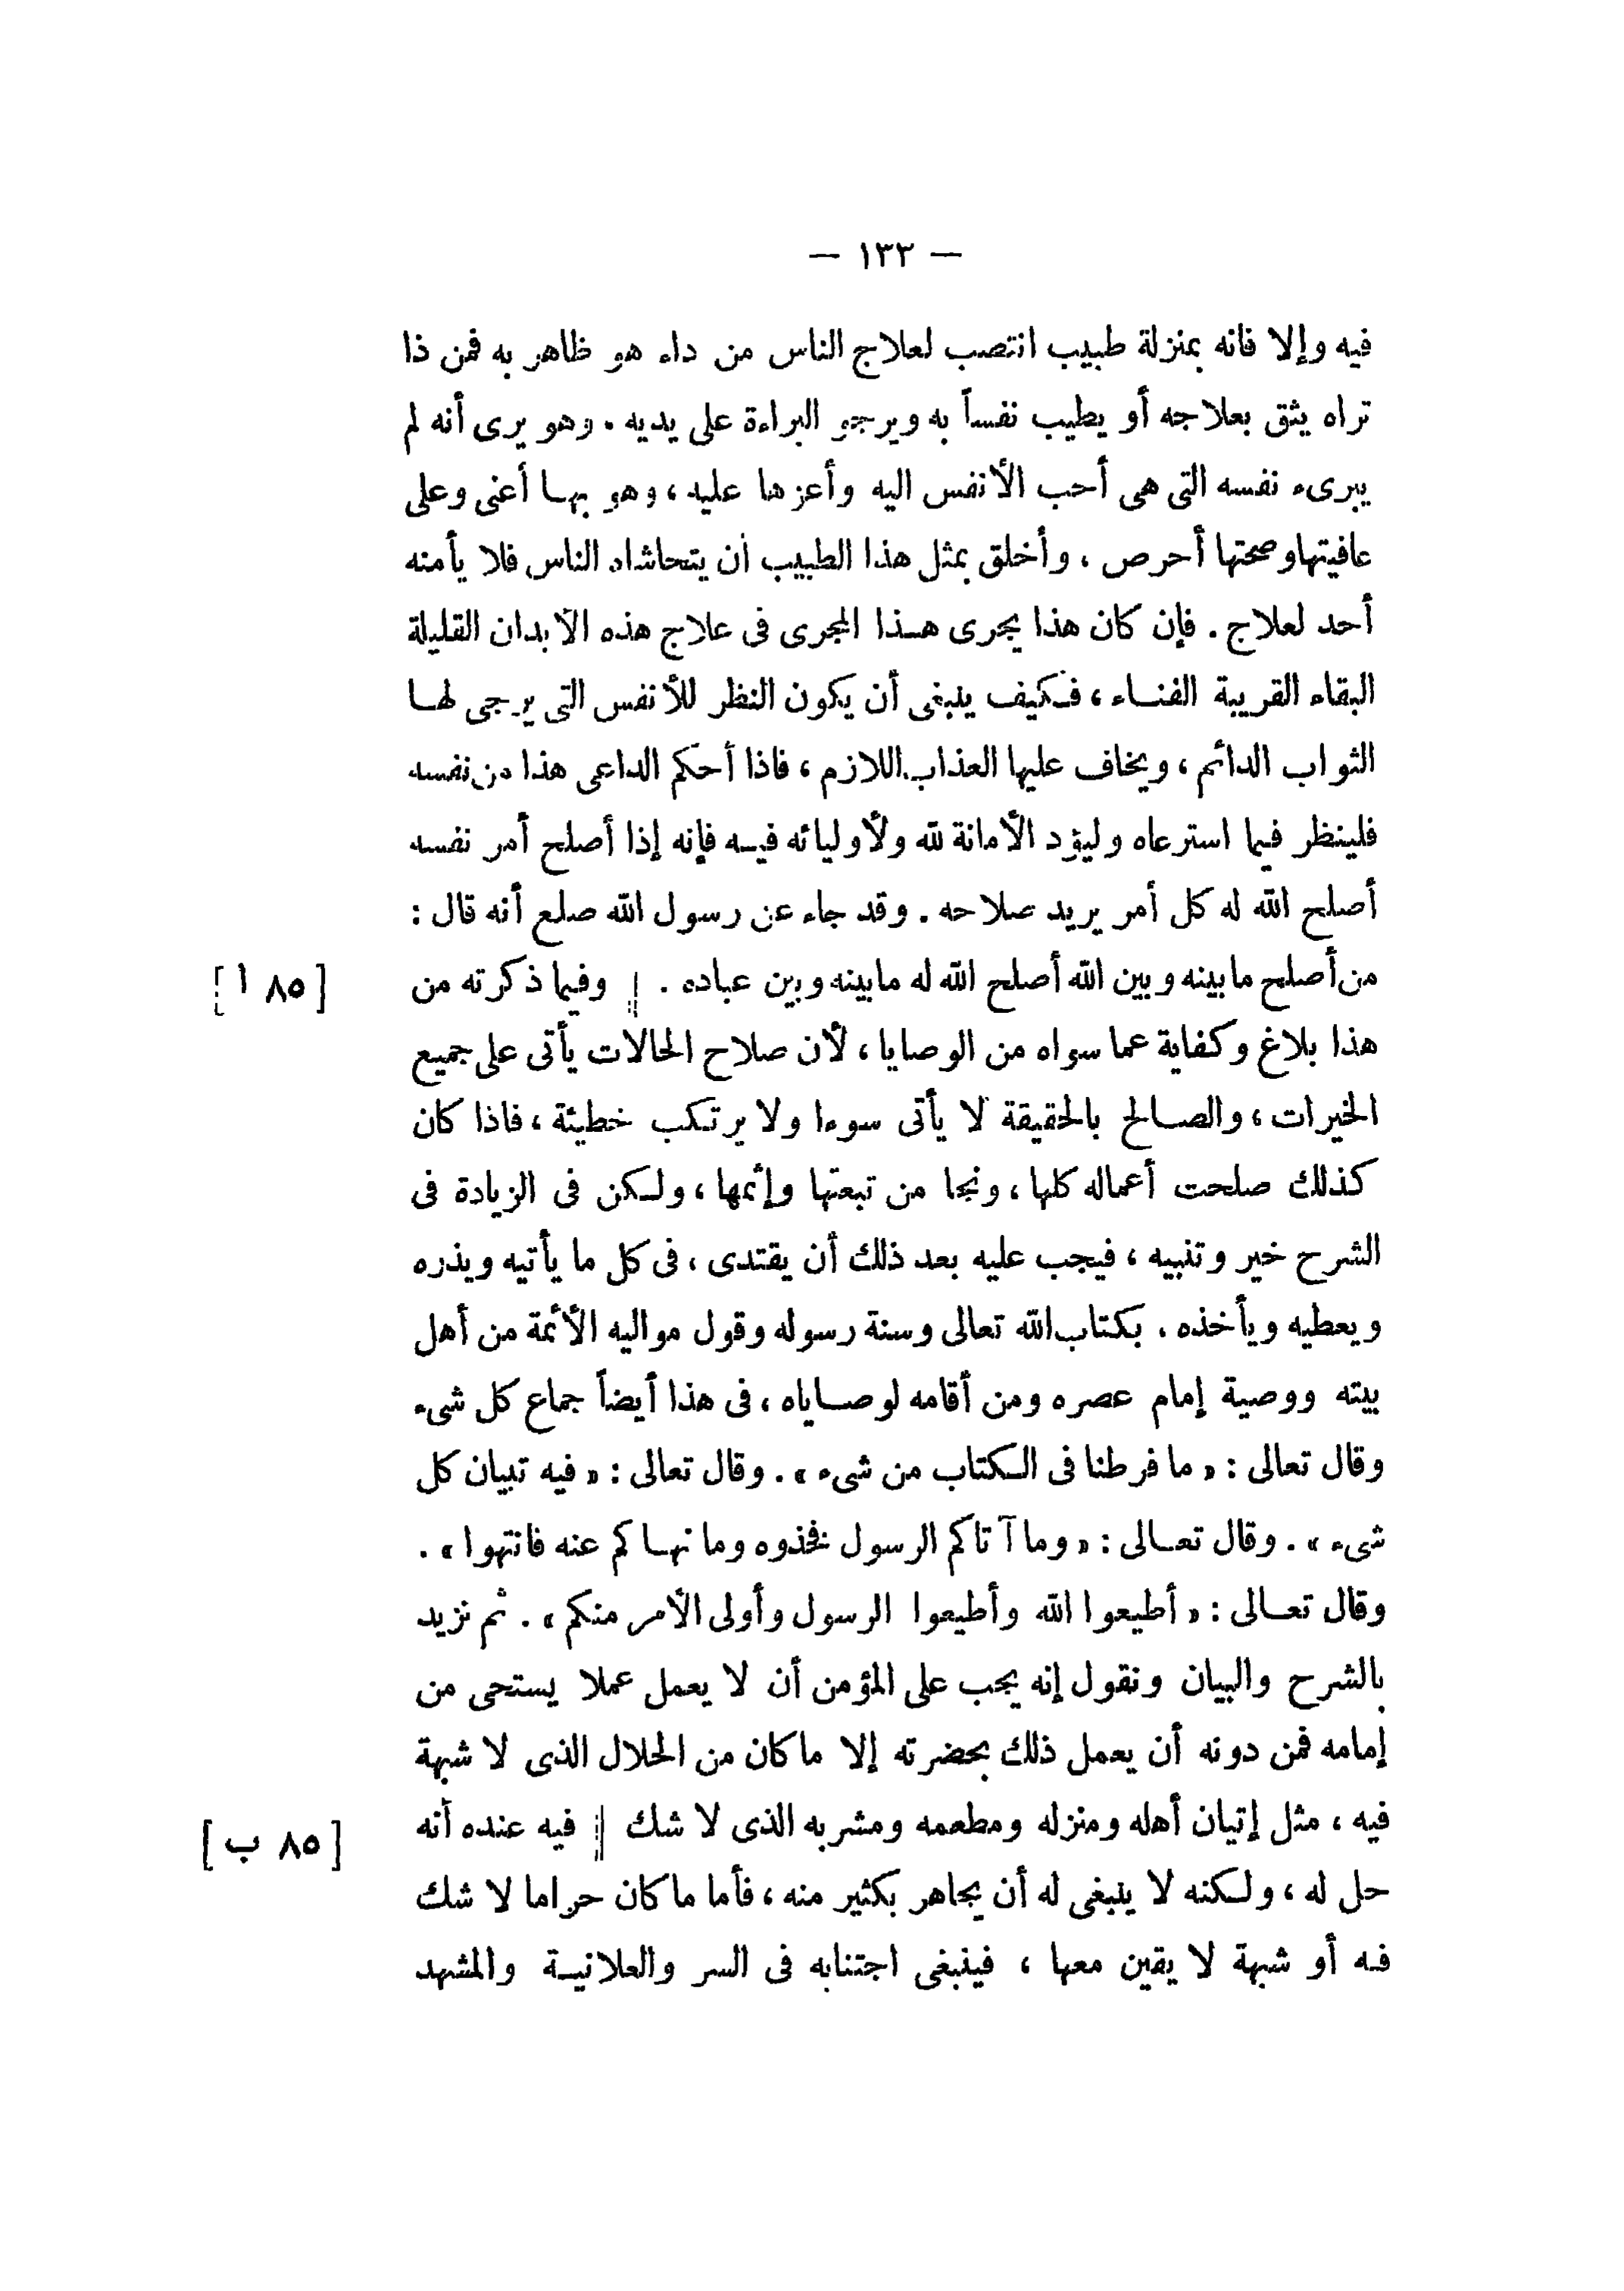 — ١٣٣ —
فيه وإلا فانه بمنزلة طبيب انتصب لعلاج الناس من داء هو ظاهر به فمن ذا
تراه يثق بعلاجه أو يطيب نفساً به ويرجو البراءة على يديه . وهو يرى أنه لم
يبرىء نفسه التى هى أحب الأنفس اليه وأعزها عليه ، وهو بهـا أعنى وعلى
عافيتها وصحتها أحرص ، وأخلق بمثل هذا الطبيب أن يتحاشاه الناس فلا يأمنه
أحد لعلاج . فإن كان هذا يجرى هـذا المجرى فى علاج هذه الأبدان القليلة
البقاء القريبة الفنـاء ، فـكيف ينبغى أن يكون النظر للأنفس التى يرجى لهـا
الثواب الدائم ، ويخاف عليها العذاب اللازم ، فاذا أحكم الداعى هذا من نفسه
فلينظر فيما استرعاه وليؤد الأمانة لله ولأوليائه فيـه فإنه إذا أصلح أمر نفسه
أصلح الله له كل أمر يريد صلاحه . وقد جاء عن رسول الله صلع أنه قال :
من أصلح ما بينه وبين الله أصلح الله له ما بينه وبين عباده . || وفيما ذكرته من [ ٨٥ ا ]
هذا بلاغ وكفاية عما سواه من الوصايا ، لأن صلاح الحالات يأتى على جميع
الخيرات ، والصـالح بالحقيقة لا يأتى سوءا ولا يرتـكب خطيئة ، فاذا كان
كذلك صلحت أعماله كلها ، ونجا من تبعتها وإثمها ، ولـكن فى الزيادة فى
الشرح خير وتنبيه ، فيجب عليه بعد ذلك أن يقتدى ، فى كل ما يأتيه ويذره
ويعطيه ويأخذه . بكتاب الله تعالى وسنة رسوله وقول مواليه الأئمة من أهل
بيته ووصية إمام عصره ومن أقامه لوصـاياه ، فى هذا أيضاً جماع كل شىء
وقال تعالى : « ما فرطنا فى الـكتاب من شىء » . وقال تعالى : « فيه تبيان كل
شىء » . وقال تعـالى : « وما آتاكم الرسول فخذوه وما نهـاكم عنه فانتهوا » .
وقال تعـالى : « أطيعوا الله وأطيعوا الرسول وأولى الأمر منكم » . ثم نزيد
بالشرح والبيان ونقول إنه يجب على المؤمن أن لا يعمل عملا يستحى من
إمامه فمن دونه أن يعمل ذلك بحضرته إلا ما كان من الحلال الذى لا شبهة
فيه ، مثل إتيان أهله ومنزله ومطعمه ومشربه الذى لا شك || فيه عنده أنه [ ٨٥ ب ]
حل له ، ولـكنه لا ينبغى له أن يجاهر بكثير منه ، فأما ما كان حراما لا شك
فـه أو شبهة لا يقين معها ، فينبغى اجتنابه فى السر والعلانيـة والمشهد